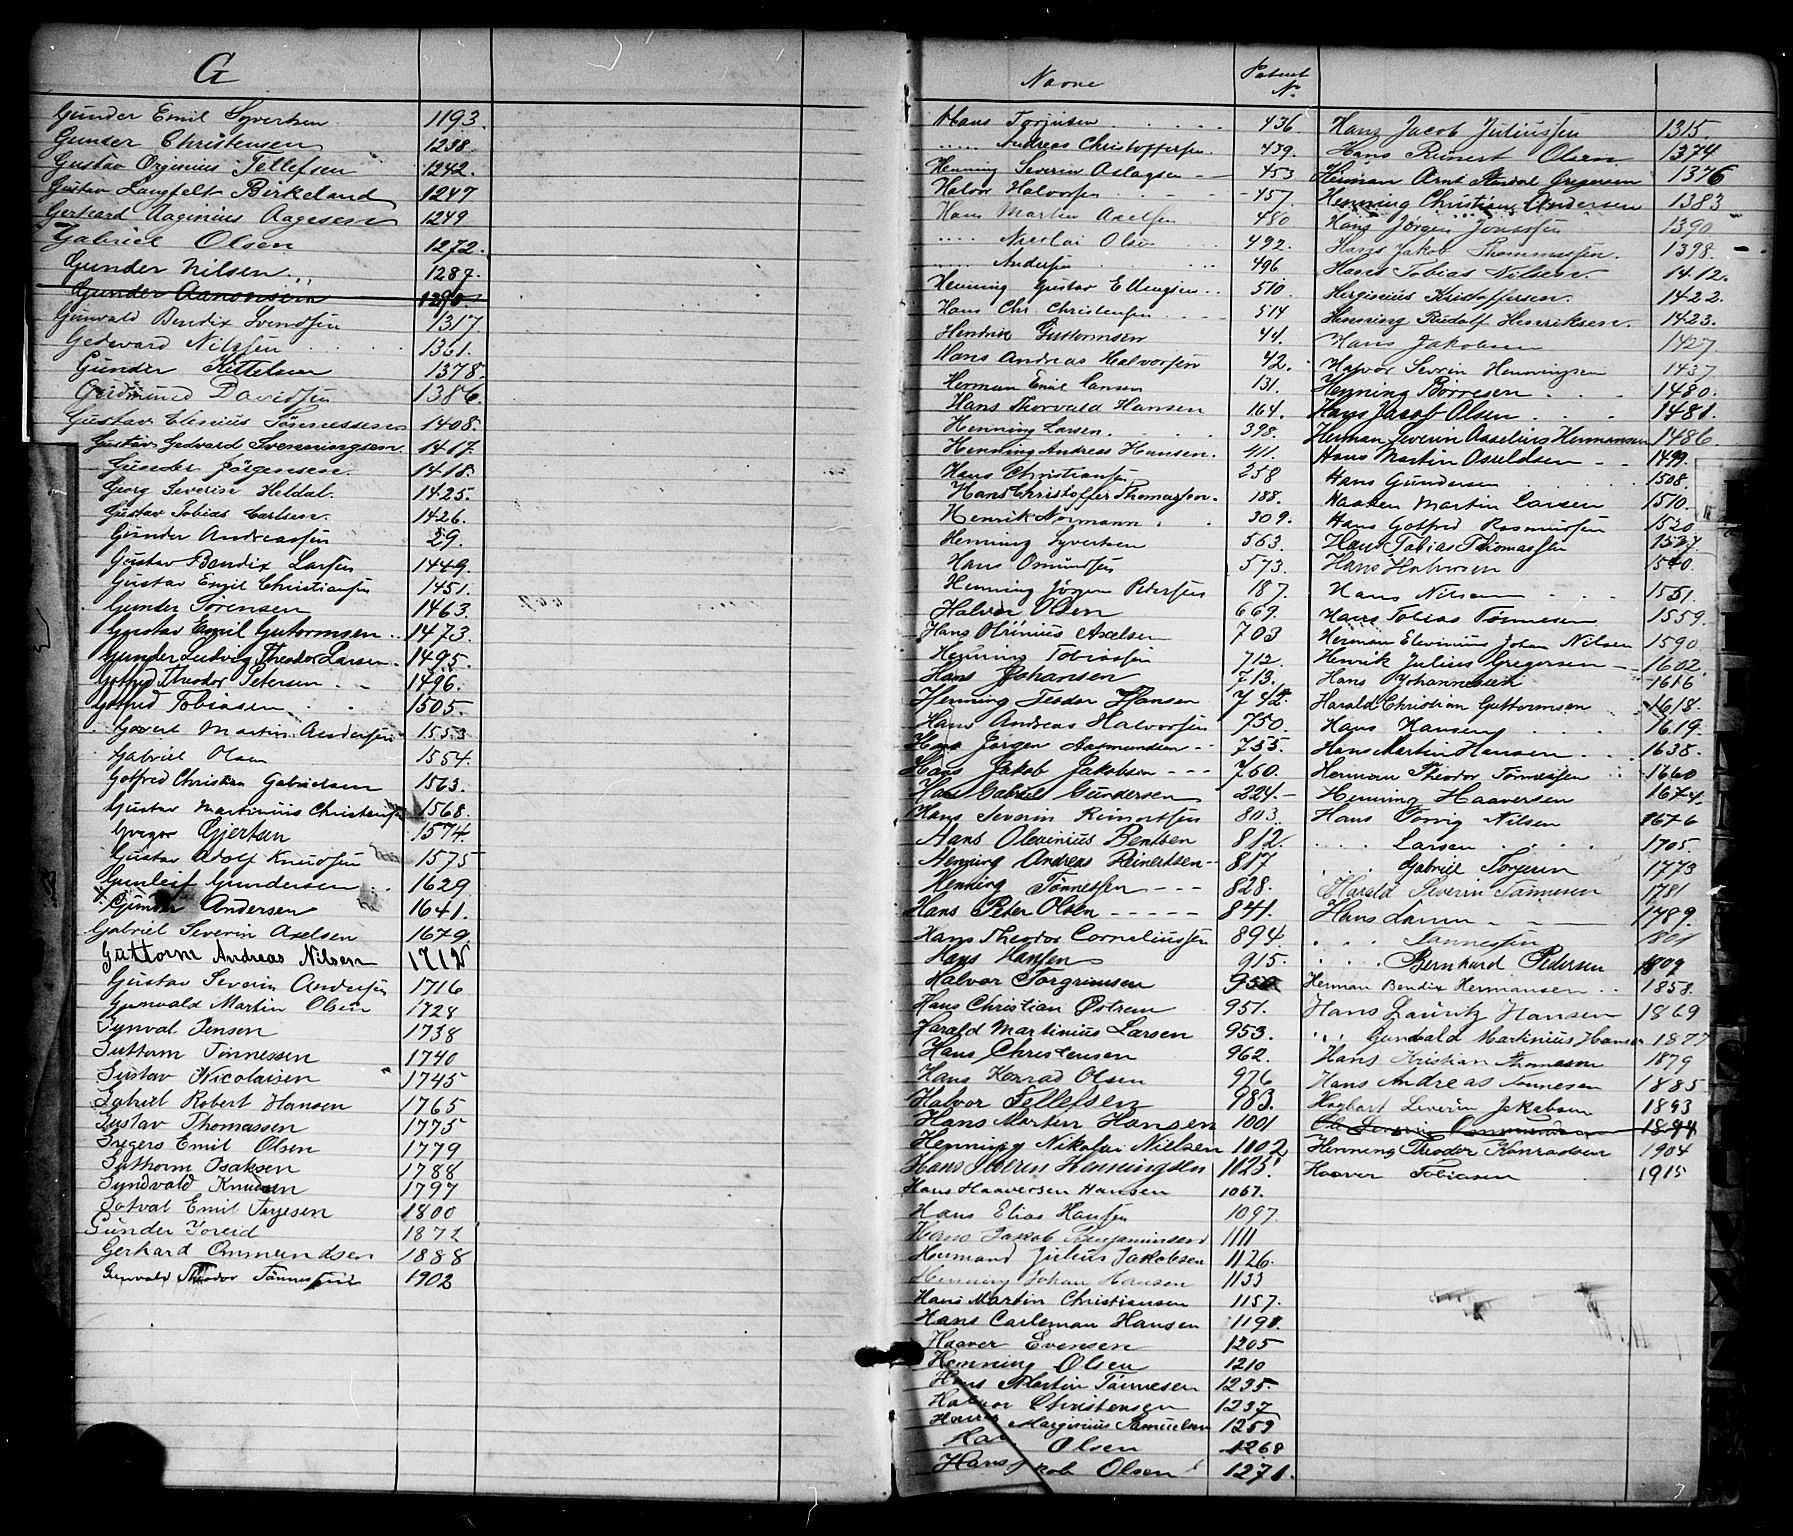 G
Gunder Emil Syvertsen 1193.
Gunder Christensen 1238.
Gustav Orginius Tellefsen 1242.
Gustav Langfelt Birkeland 1247
Gerhard Aaginius Aagesen 1249
Gabriel Olsen 1272.
Gunder Nilsen 1287.
Gunder Aanonsen 1290
Gunvald Bendix Svendsen 1317.
Gedevard Nilssen 1361.
Gunder Kittelsen 1378.
Gudmund Davidsen 1386.
Gustav Elenius Tönnessen 1408.
Gustav Gedvard Svenningsen 1417.
Gunder Jörgensen. 1418.
Georg Severin Heldal. 1425.
Gustav Tobias Carlsen. 1426.
Gunder Andreassen 29.
Gustav Bendix Larsen 1449.
Gustav Emil Christiansen 1451.
Gunder Sörensen 1463.
Gustav Emil Gutormsen 1473.
Gunder Ludvig Theodor Larsen 1495.
Gotfred Theodor Petersen 1496.
Gotfred Tobiasen 1505.
Govert Martin Andersen 1553
Gabriel Olsen 1554.
Gotfred Christian Gabrielsen 1563.
Gustav Martinius Christensen 1568.
Gregor Gjertsen 1574.
Gustav Adolf Knudsen 1575
Gunleif Gundersen 1629
Gunder Andersen 1641.
Gabriel Severin Axelsen 1679.
Guttorm Andreas Nilsen 1712
Gustav Severin Andersen 1716
Gunvald Martin Olsen 1728
Gynval Jensen 1738
Guttorm Tönnessen 1740
Gustav Nicolaisen 1745
Gabriel Robert Hansen 1765
Gustav Thomassen 1775
Gregers Emil Olsen 1779
Guthorm Isaksen 1788
Gyndvald Knudsen 1797
Gotval Emil Terjesen 1800
Gunder Foreid 1872
Gerhard Ommundsen 1888
Gunvald Theodor Tönnessen 1902
Navne Patent No
Hans Torjusen 436
..... Andreas Christoffersen 439.
Henning Severin Aslagsen 453
Halvor Halvorsen 457.
Hans Martin Axelsen 480
..... Nicolai Olsen 492.
..... Andersen 496
Henning Gustav Ellingsen 510.
Hans Chr. Christensen 514
Hendrik Guttormsen 44.
Hans Andreas Halvorsen 42.
Herman Emil Larsen 131.
Hans Thorvald Hansen 164.
Henning Larsen. 398.
Henning Andreas Hansen. 411.
Hans Christiansen 258
Hans Christoffer Thomassen. 188.
Henrik Normann 309.
Henning Syvertsen 563.
Hans Omundsen 573.
Henning Jörgen Petersen 187.
Halvor Olsen 669.
Hans Olinius Axelsen 703
Henning Tobiassen 712.
Hans Johansen 713.
Henning Teodor Hansen 742.
Hans Andreas Halvorsen 750.
Hans Jörgen Aamundsen 755.
Hans Jakob Jakobsen 760.
Hans Gabriel Gundersen 224.
Hans Severin Reinertsen 803.
Hans Olevinius Bentsen 812.
Henning Andreas Reinertsen 817.
Henning Tönnessen 828.
Hans Peter Olsen 841.
Hans Theodor Corneliussen 894.
Hans Hansen 915.
Halvor Torgrimsen 950
Hans Christian Östrem 951.
Harald Martinius Larsen 953.
Hans Christensen 962.
Hans Konrad Olsen 976
Halvor Tellefsen 983.
Hans Morten Hansen 1001
Henning Nikolai Nielsen 1002
Hans Severin Henningsen 1125
Hans Haaversen Hansen 1067.
Hans Elias Hansen 1097.
Hans Jakob Benjaminsen 1111
Hermand Julius Jakobsen 1126.
Henning Johan Hansen 1133
Hans Martin Christiansen 1157.
Hans Carleman Hansen 1198.
Haaver Evensen 1205
Henning Olsen 1210
Hans Martin Tönnesen 1235.
Halvor Christensen 1237
Hans Marginius Samuelsen 1259
Olsen 1268
Hans Olsen 1271.
Hans Jacob Juliussen 1315.
Hans Reinert Olsen 1374
Herman Arnt Stordal Gregersen 1376
Henning Christian Andersen 1383
Hans Jörgen Jonassen 1390
Hans Jakob Thommassen. 1398.
Hans Tobias Nilsen. 1412.
Herginius Kristoffersen. 1422.
Henning Rudolf Henriksen. 1423.
Hans Jakobsen 1427
Halvor Severin Henningsen 1437
Henning Börresen 1480.
Hans Jacob Olsen 1481.
Herman Severin Asselius Hermansen 1486
Hans Martin Osuldsen 1499.
Hans Gundersen 1508.
Haaken Martin Larsen 1510.
Hans Gotfred Rasmussen 1520
Hans Tobias Thomassen 1537.
Hans Halvorsen 1540.
Hans Nilsen 1551.
Hans Tobias Tönnesen 1559.
Herman Elevinius Johan Nilsen 1590
Henrik Julius Gregersen 1602.
Hans Johannesen 1616
Harald Christian Guttormsen 1618.
Hans Hansen 1619.
Hans Martin Hansen 1638.
Herman Theodor Tönnessen 1660
Henning Haaversen 1674.
Hans Nilsen 1676
. . . Larsen 1705
. . . Gabriel Torjesen 1773
Harald Severin Tönnesen 1781
Hans Larsen 1789.
. . . Tönnessen 1801
. . . Bernhard Pedersen 1809
Herman Bendix Hermansen 1858.
Hans Lauritz Hansen 1869
. . Gundvald Martinius Hansen 1877
Hans Kristian Thomesen 1879
Hans Andreas Tönnesen 1885
Hagbart Severin Jakobsen 1893
Severin Ommundsen 1894
Henning Theodor Konradsen 1904
Haaver Tobiasen 1915